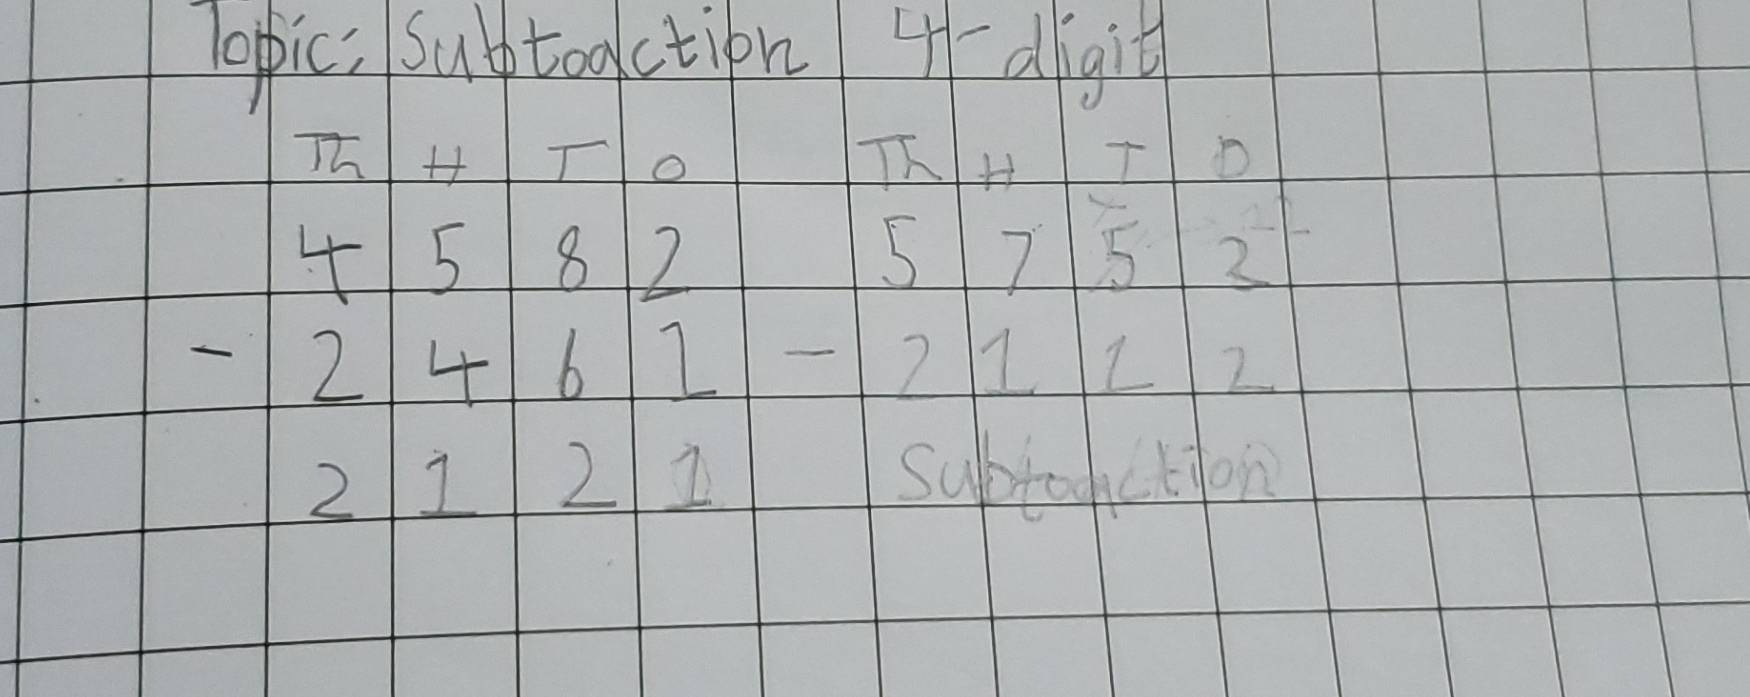 Topic: Subtoaction 4-digit
Th H T O Th H T O
4 5 8 2 5 7 5 2
- 2 4 6 1 - 2 1 1 2
2 1 2 1 Subtoaction